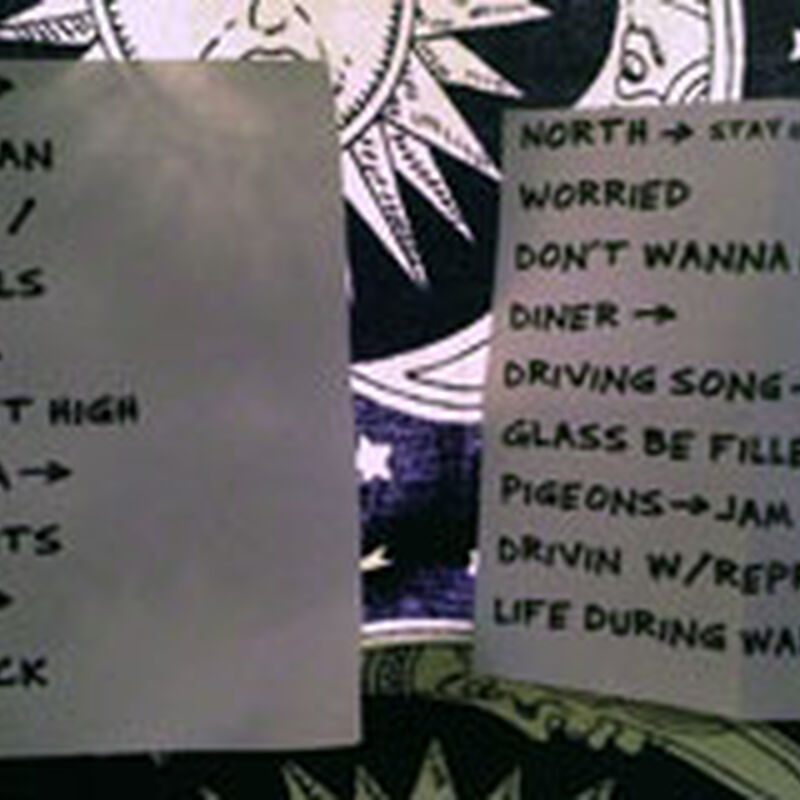 AN
/
LS
T HIGH
A→
TS
CK
NORTH → STAY
WORRIED
DON'T WANNA
DINER →
DRIVING SONG-
GLASS BE FILLE
PIGEONS→JAM
DRIVIN W/REPR
LIFE DURING WA